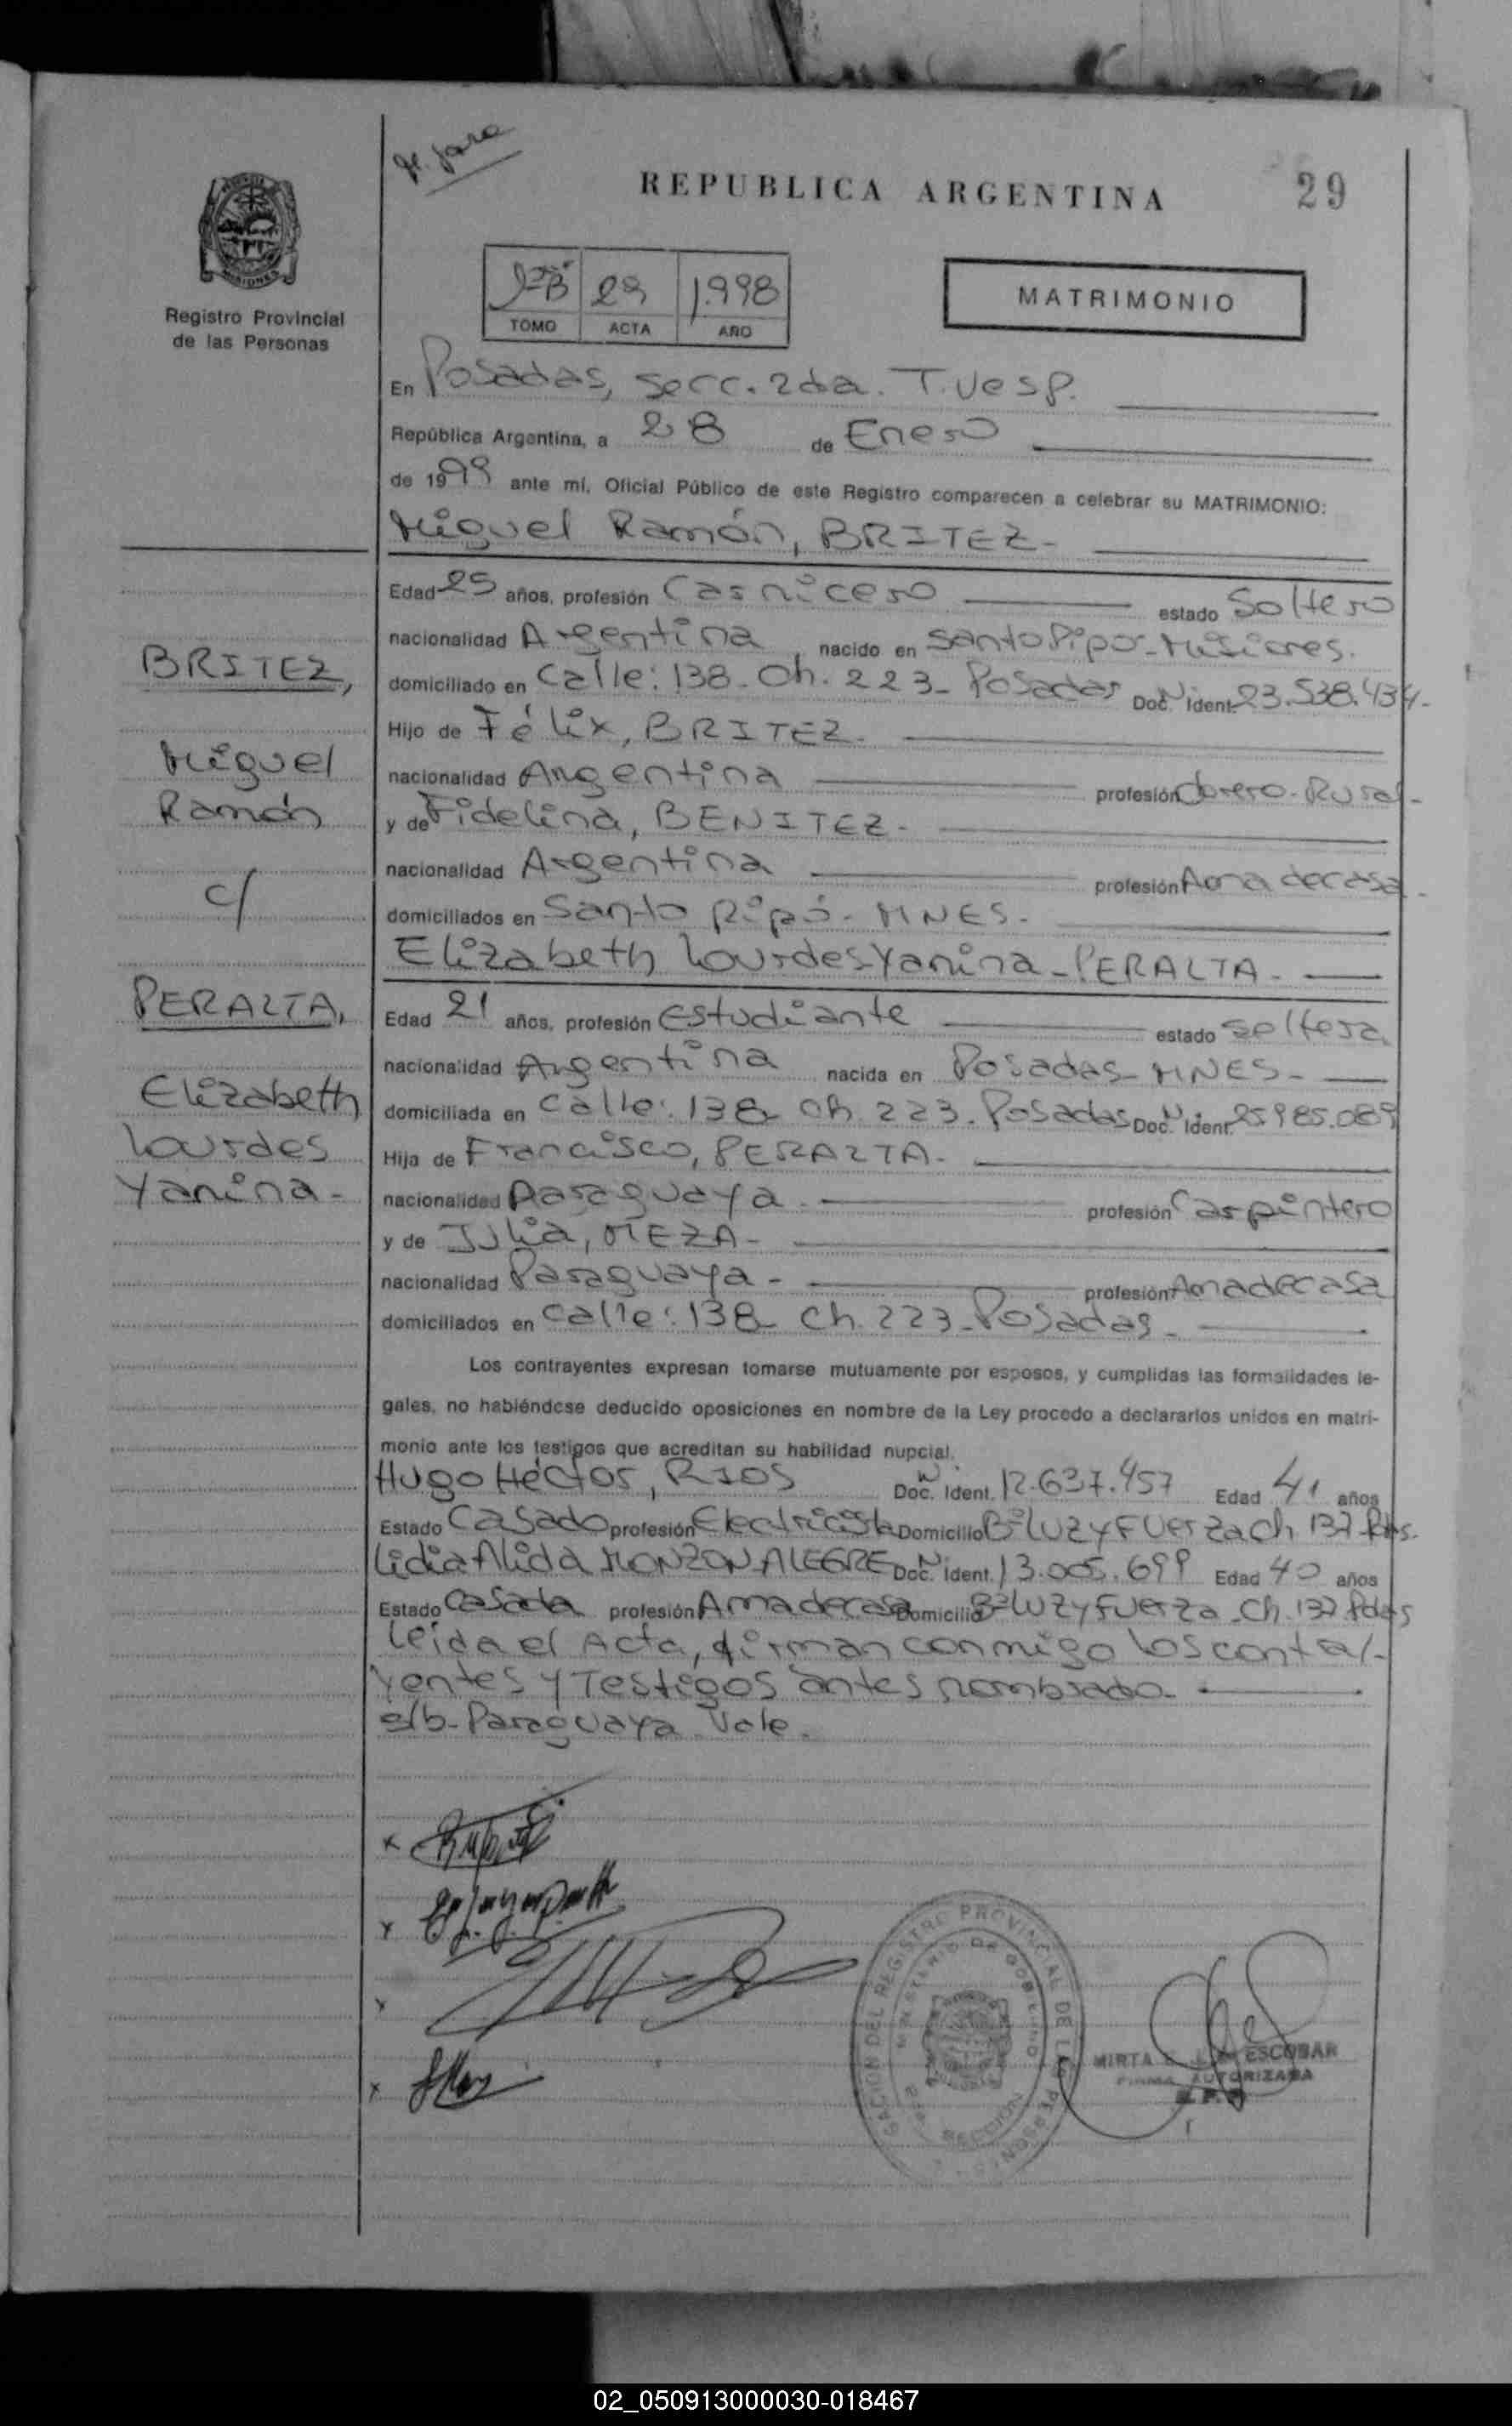 REPUBLICA ARGENTINA
29
Registro Provincial
de las Personas
29 1.998
TOMO ACTA AÑO
MATRIMONIO
En Posadas, secc. 2da. T. Vesp.
República Argentina, a 28 de Enero
de 1998 ante mí, Oficial Público de este Registro comparecen a celebrar su MATRIMONIO:
Miguel Ramón, BRITEZ-
Edad 25 años, profesión Carnicero estado Soltero
nacionalidad Argentina nacido en Santo Pipó-Misiones.
domiciliado en Calle: 138- Ch. 223- Posadas Doc. N. Ident. 23.538.434-
Hijo de Félix, BRITEZ-
nacionalidad Argentina profesión Obrero-Rural-
y de Fidelina, BENITEZ-
nacionalidad Argentina profesión Ama de casa-
domiciliados en Santo Pipó- MNES-
Elizabeth Lourdes Yanina-PERALTA-
Edad 21 años, profesión estudiante estado soltera
nacionalidad Argentina nacida en Posadas-MNES-
domiciliada en calle: 138- Ch. 223. Posadas Doc. N. Ident. 25.985.089
Hija de Francisco, PERALTA-
nacionalidad Paraguaya- profesión Carpintero
y de Julia, MEZA-
nacionalidad Paraguaya- profesión Ama de casa
domiciliados en calle: 138- Ch. 223-Posadas-
BRITEZ,
Miguel
Ramón
c/
PERALTA,
Elizabeth
Lourdes
Yanina-
Los contrayentes expresan tomarse mutuamente por esposos, y cumplidas las formalidades le-
gales, no habiéndose deducido oposiciones en nombre de la Ley procedo a declararlos unidos en matri-
monio ante los testigos que acreditan su habilidad nupcial.
Hugo Héctor, RIOS Doc. N. Ident. 12.637.457 Edad 41 años
Estado Casado profesión Electricista Domicilio Bº LUZ y FUERZA Ch 137 Pdas.
Lidia Alida MONZON ALEGRE Doc. N. Ident. 13.005.699 Edad 40 años
Estado Casada profesión Ama de casa Domicilio Bº LUZ y FUERZA-Ch. 137 Pdas
Leída el Acta, firman conmigo los contra/-
yentes y Testigos antes nombrado-
s/b-Paraguaya Vale.
REGISTRO PROVINCIAL DE LAS PERSONAS
MINISTERIO DE GOBIERNO
SECCION
MIRTA ESCOBAR
FIRMA AUTORIZADA
02_050913000030-018467